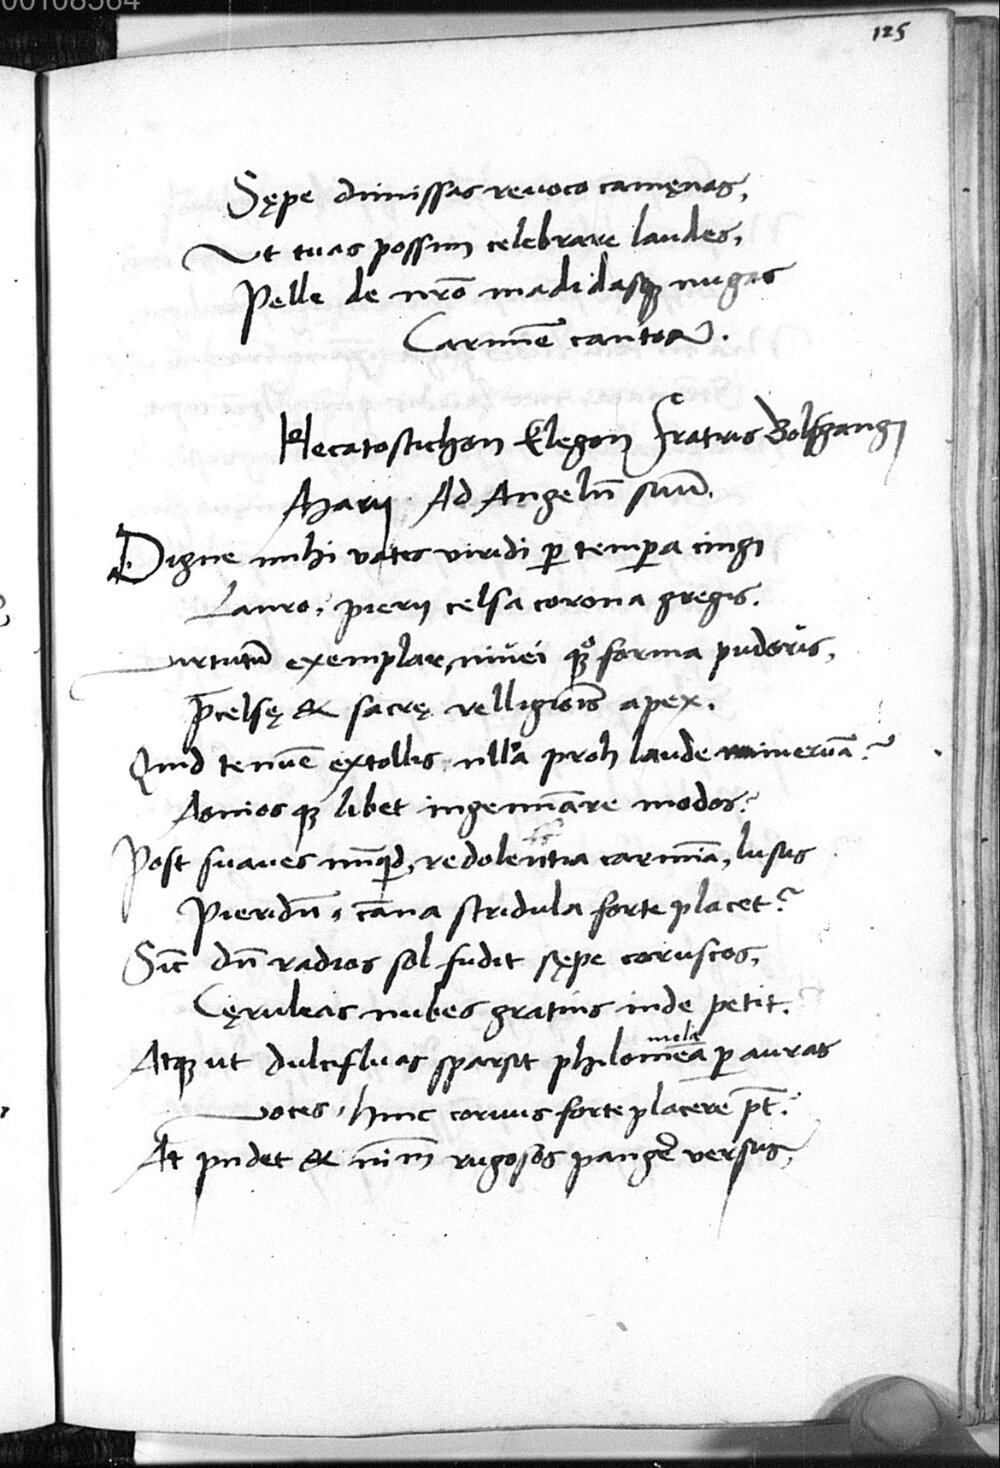 00108564
125
Sępe dimissas reuoco camęnas,
Ut tuas possim celebrare laudes,
Pelle de nr̄o madidasqꝫ nugas
Carmīe cantoꝝ.
Hecatostichon Elegon fratris Bolfgangi
Marij Ad Angelū suū.
Digne mihi vates viridi ꝑ tempa cingi
Lauro, pierij celsa corona gregis.
Virtutū exemplar, niuei qꝫ forma pudoris,
P̄celsę & sacrę relligiōis apex.
Quid tenuē extollis nulla proh laude mineruā?
Aonios qꝫ libet ingemīare modos?
Post suaues nūqd, redolentia carmīa, lusus
Pieridū, cāna stridula forte placet?
Sic dū radios sol fudit sępe coruscos,
Cęruleas nubes gratius inde petit.
Atqꝫ ut dulcifluas sparsit philomēa mela ꝑ auras
Voces, hinc coruus forte placere pt̄.
At pudet & nimī rugosos pangē versus,